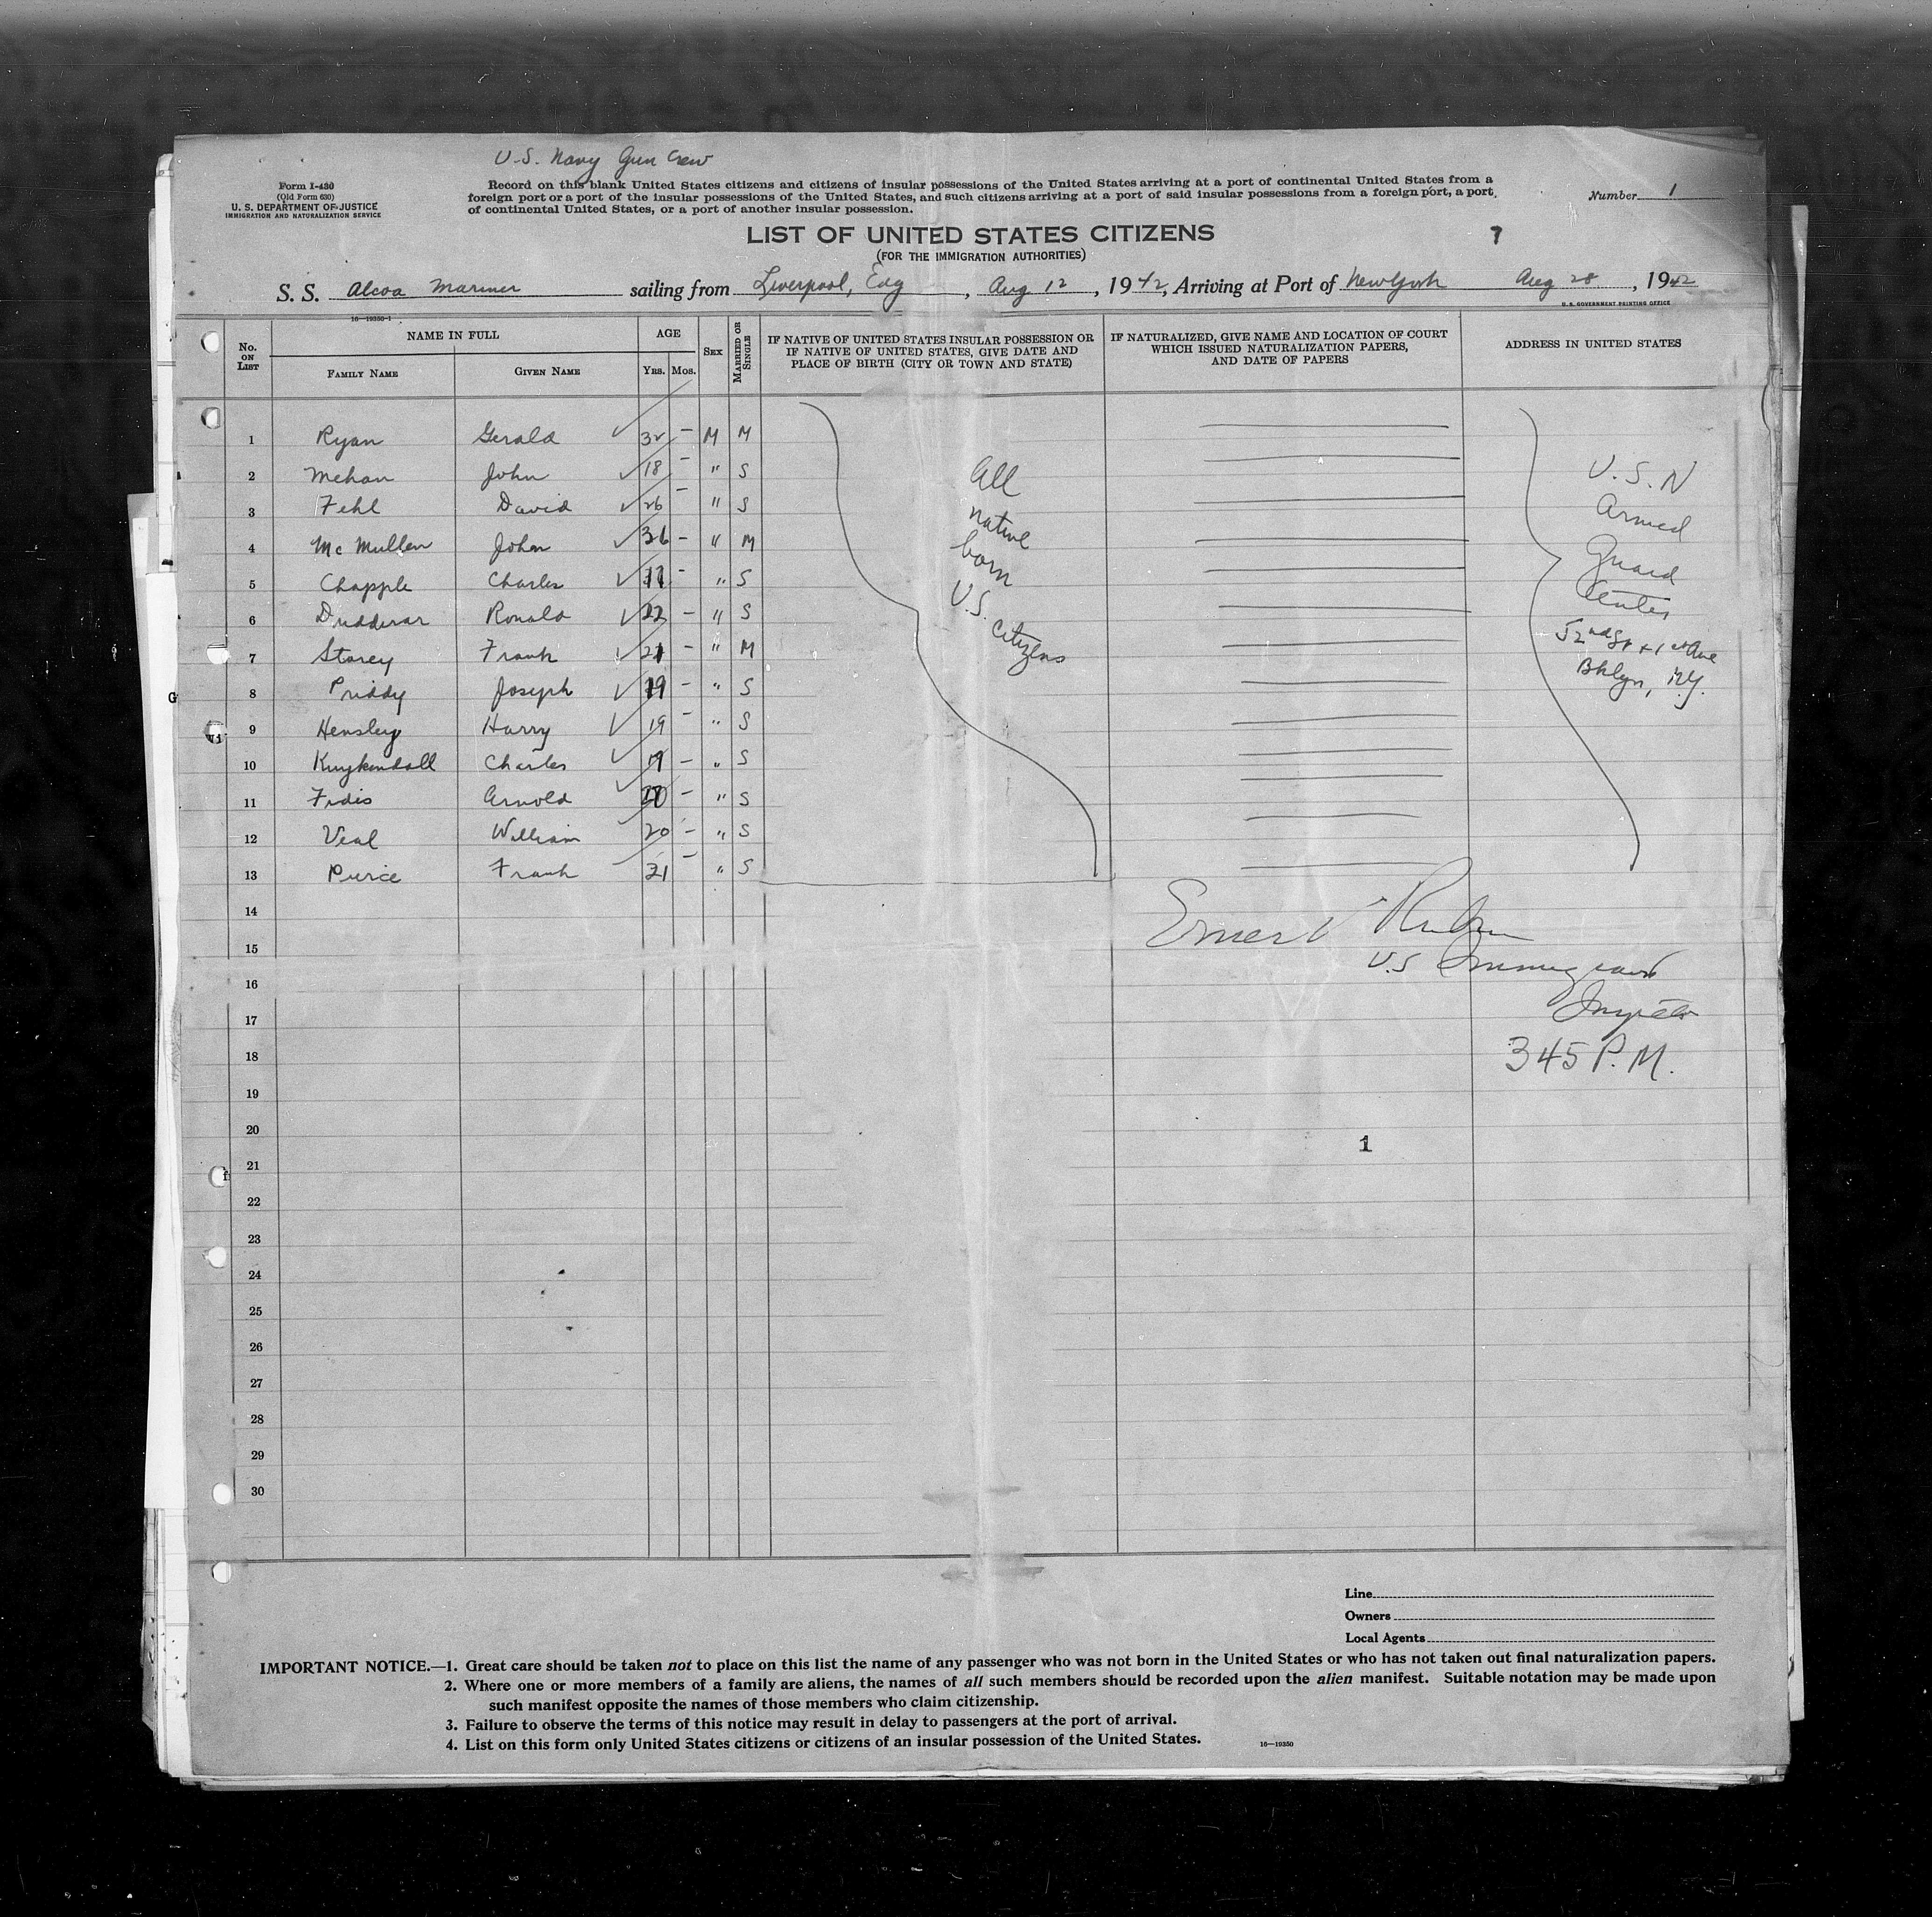 U.S. Navy Gun Crew
Form I-430
(Old Form 630)
U. S. DEPARTMENT OF JUSTICE
IMMIGRATION AND NATURALIZATION SERVICE
Record on this blank United States citizens and citizens of insular possessions of the United States arriving at a port of continental United States from a
foreign port or a port of the insular possessions of the United States, and such citizens arriving at a port of said insular possessions from a foreign port, a port
of continental United States, or a port of another insular possession.
Number 1
LIST OF UNITED STATES CITIZENS
7
(FOR THE IMMIGRATION AUTHORITIES)
S. S. Alcoa Mariner sailing from Liverpool, Eng, Aug 12, 1942, Arriving at Port of New York Aug 28, 1942
U. S. GOVERNMENT PRINTING OFFICE
16—19350-1
No. ON LIST
NAME IN FULL
FAMILY NAME
GIVEN NAME
AGE
YRS.
MOS.
SEX
MARRIED OR SINGLE
IF NATIVE OF UNITED STATES INSULAR POSSESSION OR
IF NATIVE OF UNITED STATES, GIVE DATE AND
PLACE OF BIRTH (CITY OR TOWN AND STATE)
IF NATURALIZED, GIVE NAME AND LOCATION OF COURT
WHICH ISSUED NATURALIZATION PAPERS,
AND DATE OF PAPERS
ADDRESS IN UNITED STATES
1 Ryan Gerald 32 – M M
2 Mehan John 18 – " S
3 Fehl David 26 – " S
4 McMullen John 36 – " M
5 Chapple Charles – " S
6 Dudderar Ronald 22 – " S
7 Storey Frank 21 – " M
8 Priddy Joseph 19 – " S
9 Hensley Harry 19 – " S
10 Kuykendall Charles 19 – " S
11 Fidis Arnold 20 – " S
12 Veal William 20 – " S
13 Purce Frank 21 – " S
All
native
born
U.S.
citizens
U.S.N
Armed
Guard
Center
52nd St + 1st Ave
Bklyn, N.Y.
U.S Immigrant
Inspector
345 P.M.
14
15
16
17
18
19
20
1
21
22
23
24
25
26
27
28
29
30
Line
Owners
Local Agents
IMPORTANT NOTICE.—1. Great care should be taken not to place on this list the name of any passenger who was not born in the United States or who has not taken out final naturalization papers.
2. Where one or more members of a family are aliens, the names of all such members should be recorded upon the alien manifest. Suitable notation may be made upon
such manifest opposite the names of those members who claim citizenship.
3. Failure to observe the terms of this notice may result in delay to passengers at the port of arrival.
4. List on this form only United States citizens or citizens of an insular possession of the United States.
16—19350